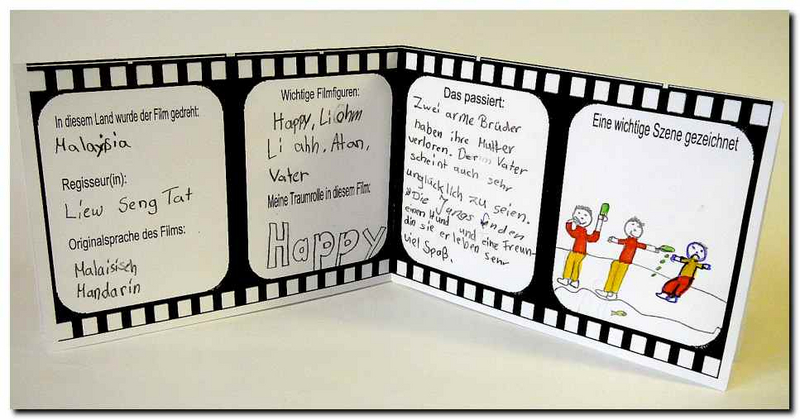 In diesem Land wurde der Film gedreht:
Malaysia
Regisseur(in):
Liew Seng Tat
Originalsprache des Films:
Malaisisch
Mandarin
Wichtige Filmfiguren:
Happy, Li ohm
Li ahh, Atan,
Vater
Meine Traumrolle in diesem Film:
Happy
Das passiert:
Zwei arme Brüder
haben ihre Mutter
verloren. Der Vater
scheint auch sehr
unglücklich zu seien.
Die Jungs finden
einen Hund und eine Freun-
din sie erleben sehr
viel Spaß.
Eine wichtige Szene gezeichnet